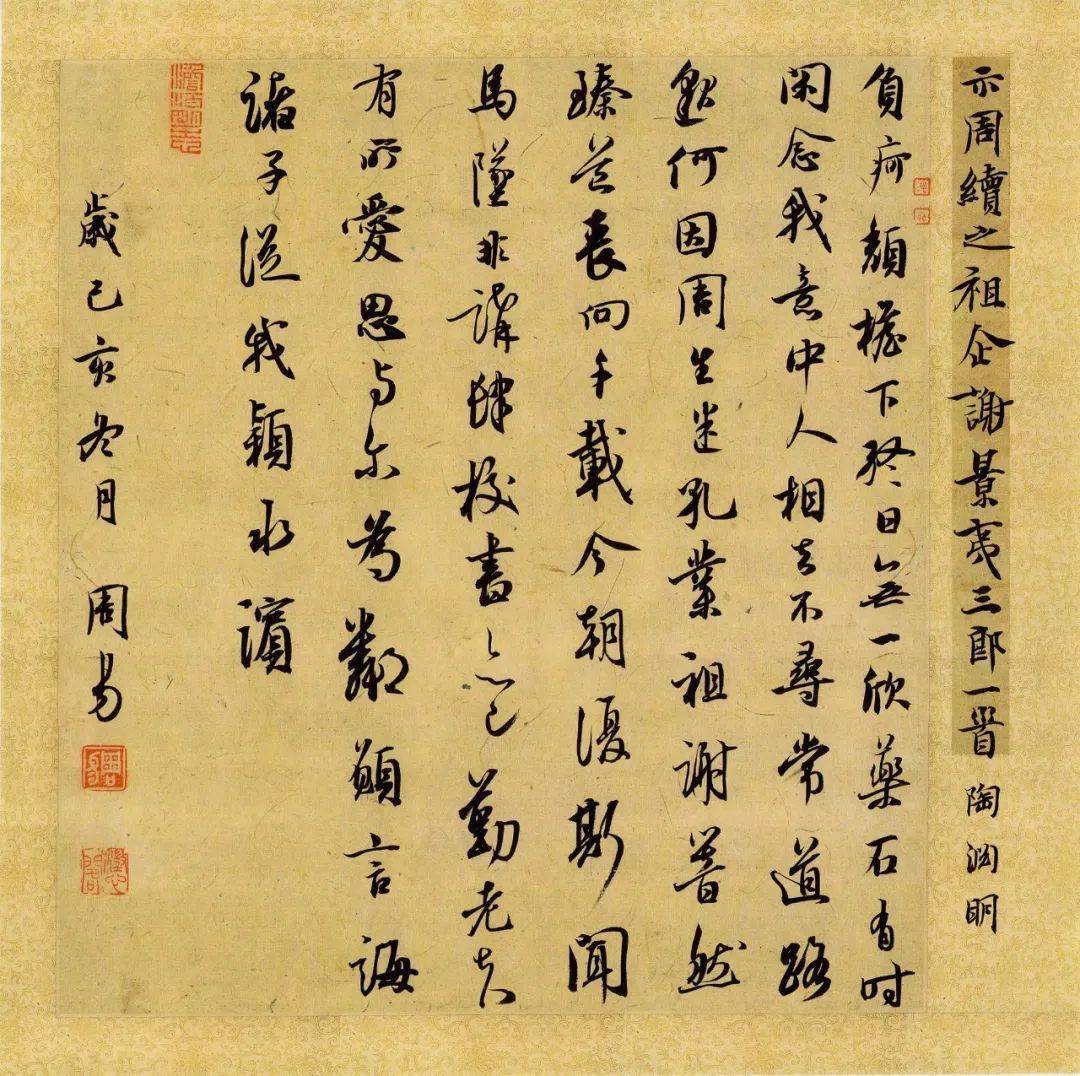 示周續之祖企謝景夷三郎一首 陶渊明
負痾頹檐下終日無一欣藥石有时
閑念我意中人相去不尋常道路
邈何因周生述孔業祖謝響然
臻道喪向千載今朝復斯聞
馬墜非講肆校書亦已勤老夫
有所愛思与尔為鄰願言誨
諸子從我潁水濱
歲己亥冬月 周易